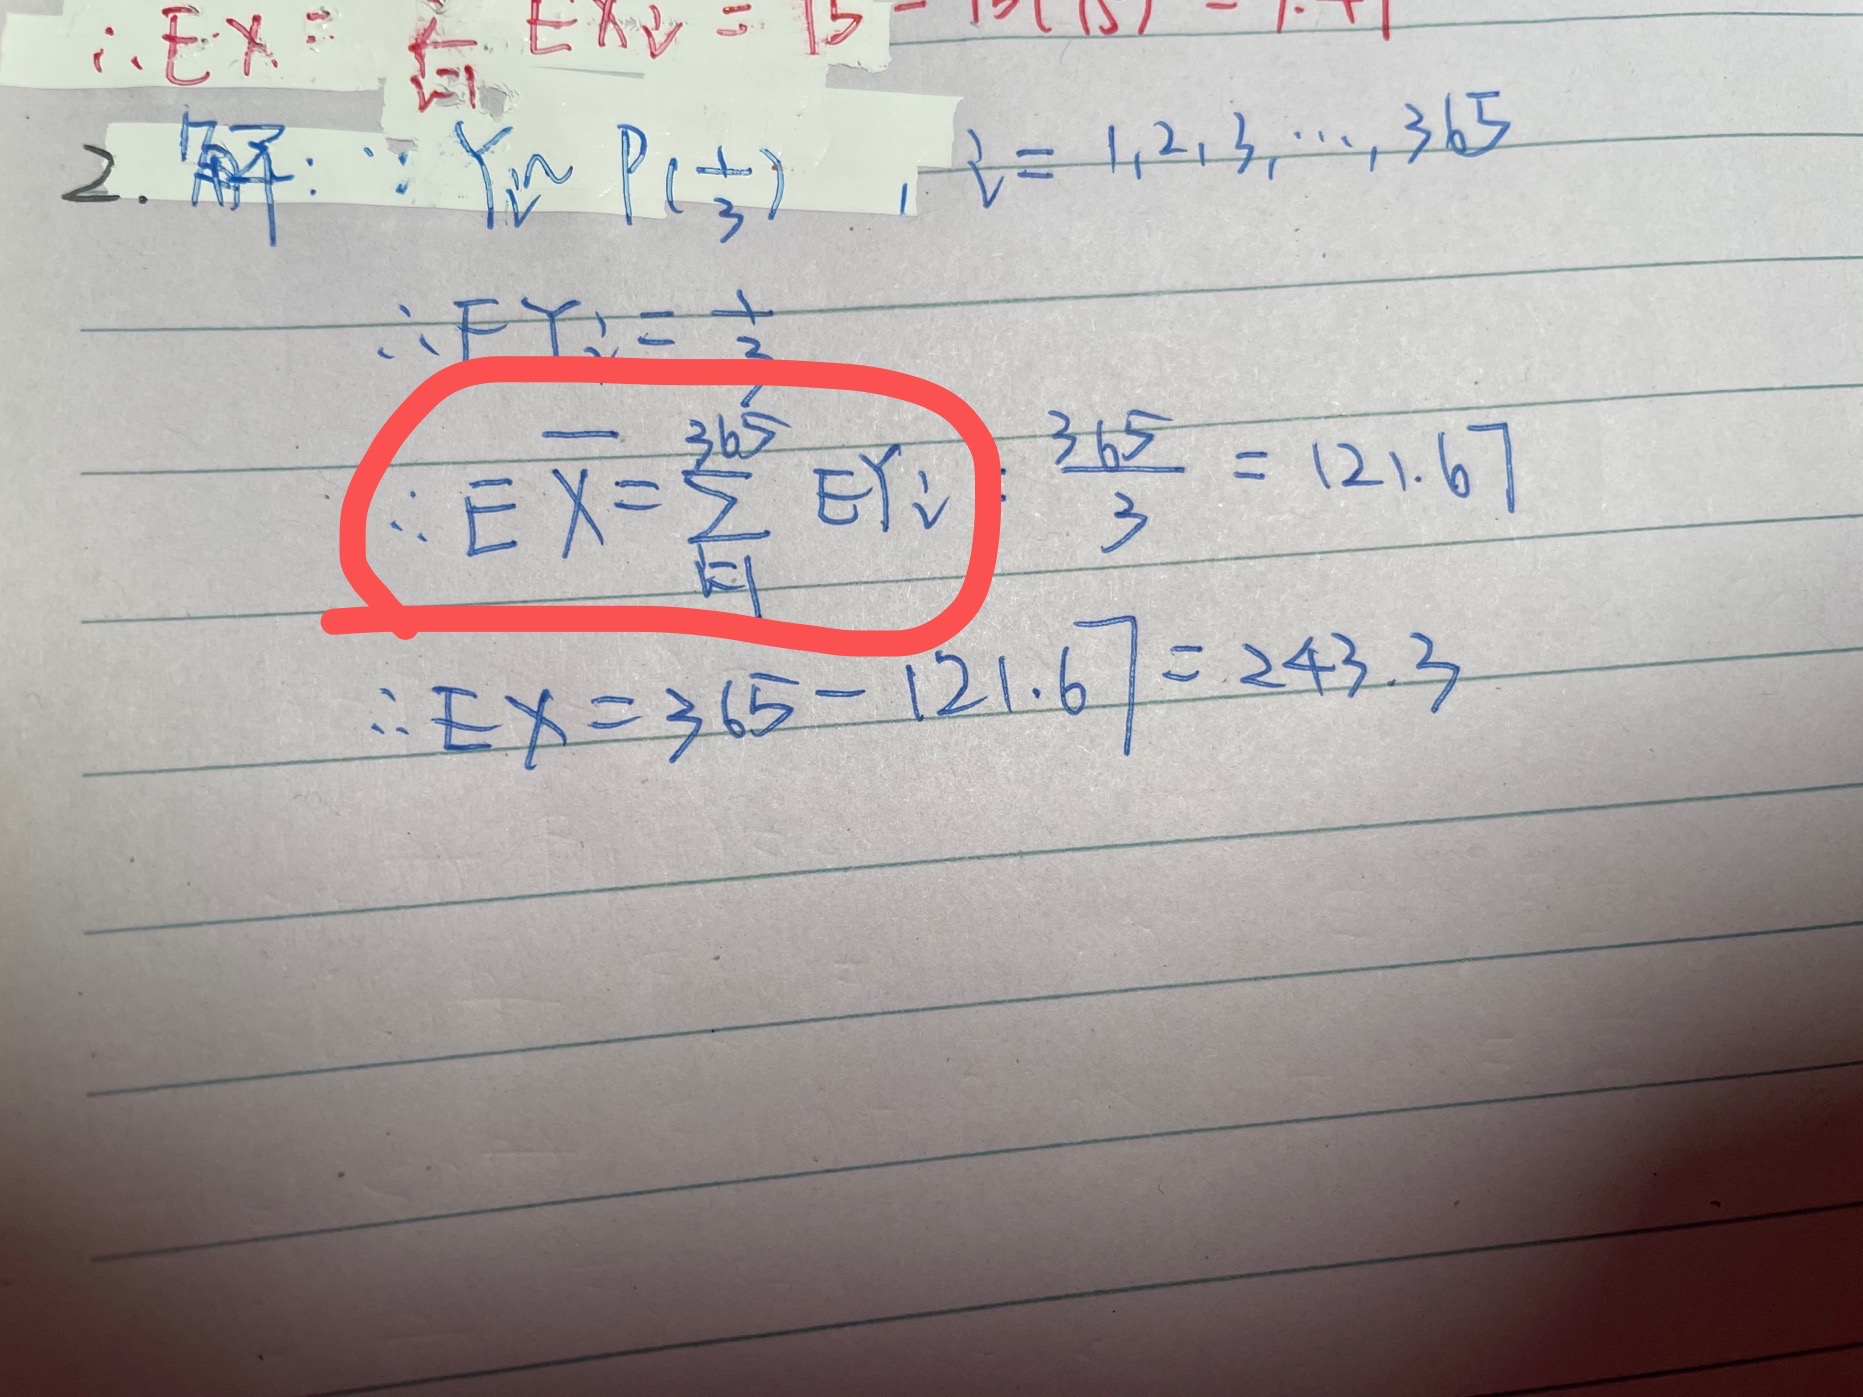 ∴ EX = Σ EXi = 15 -
i=1
2. 解: ∵ Yi ~ P(1/3) , i = 1,2,3,…,365
∴ EYi = 1/3
∴ E X̄ = Σ_{i=1}^{365} EYi = 365/3 = 121.67
∴ EX = 365 - 121.67 = 243.3